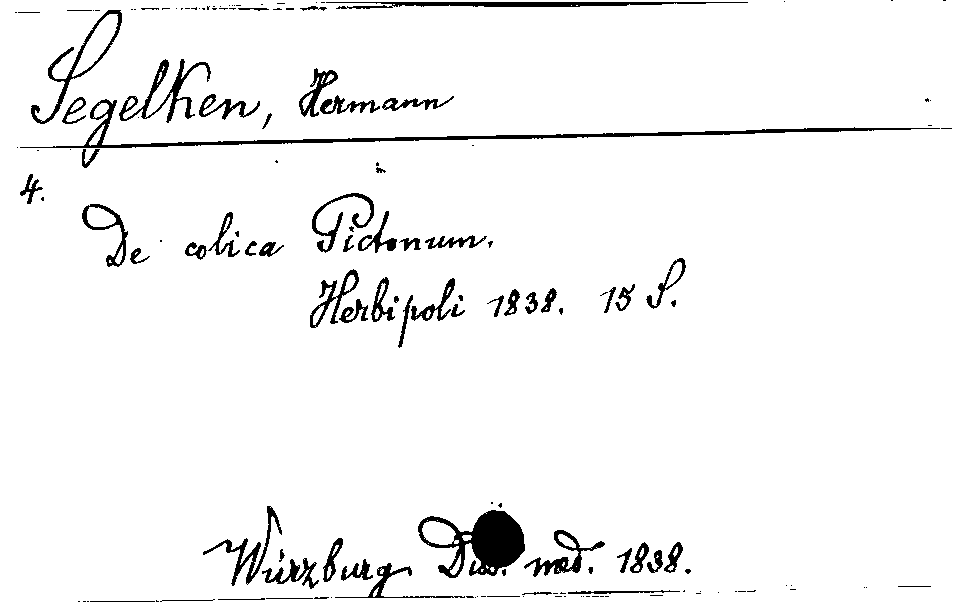 Segelken, Hermann
4.
De colica Pictonum.
Herbipoli 1838. 15 S.
Würzburg Diss. med. 1838.